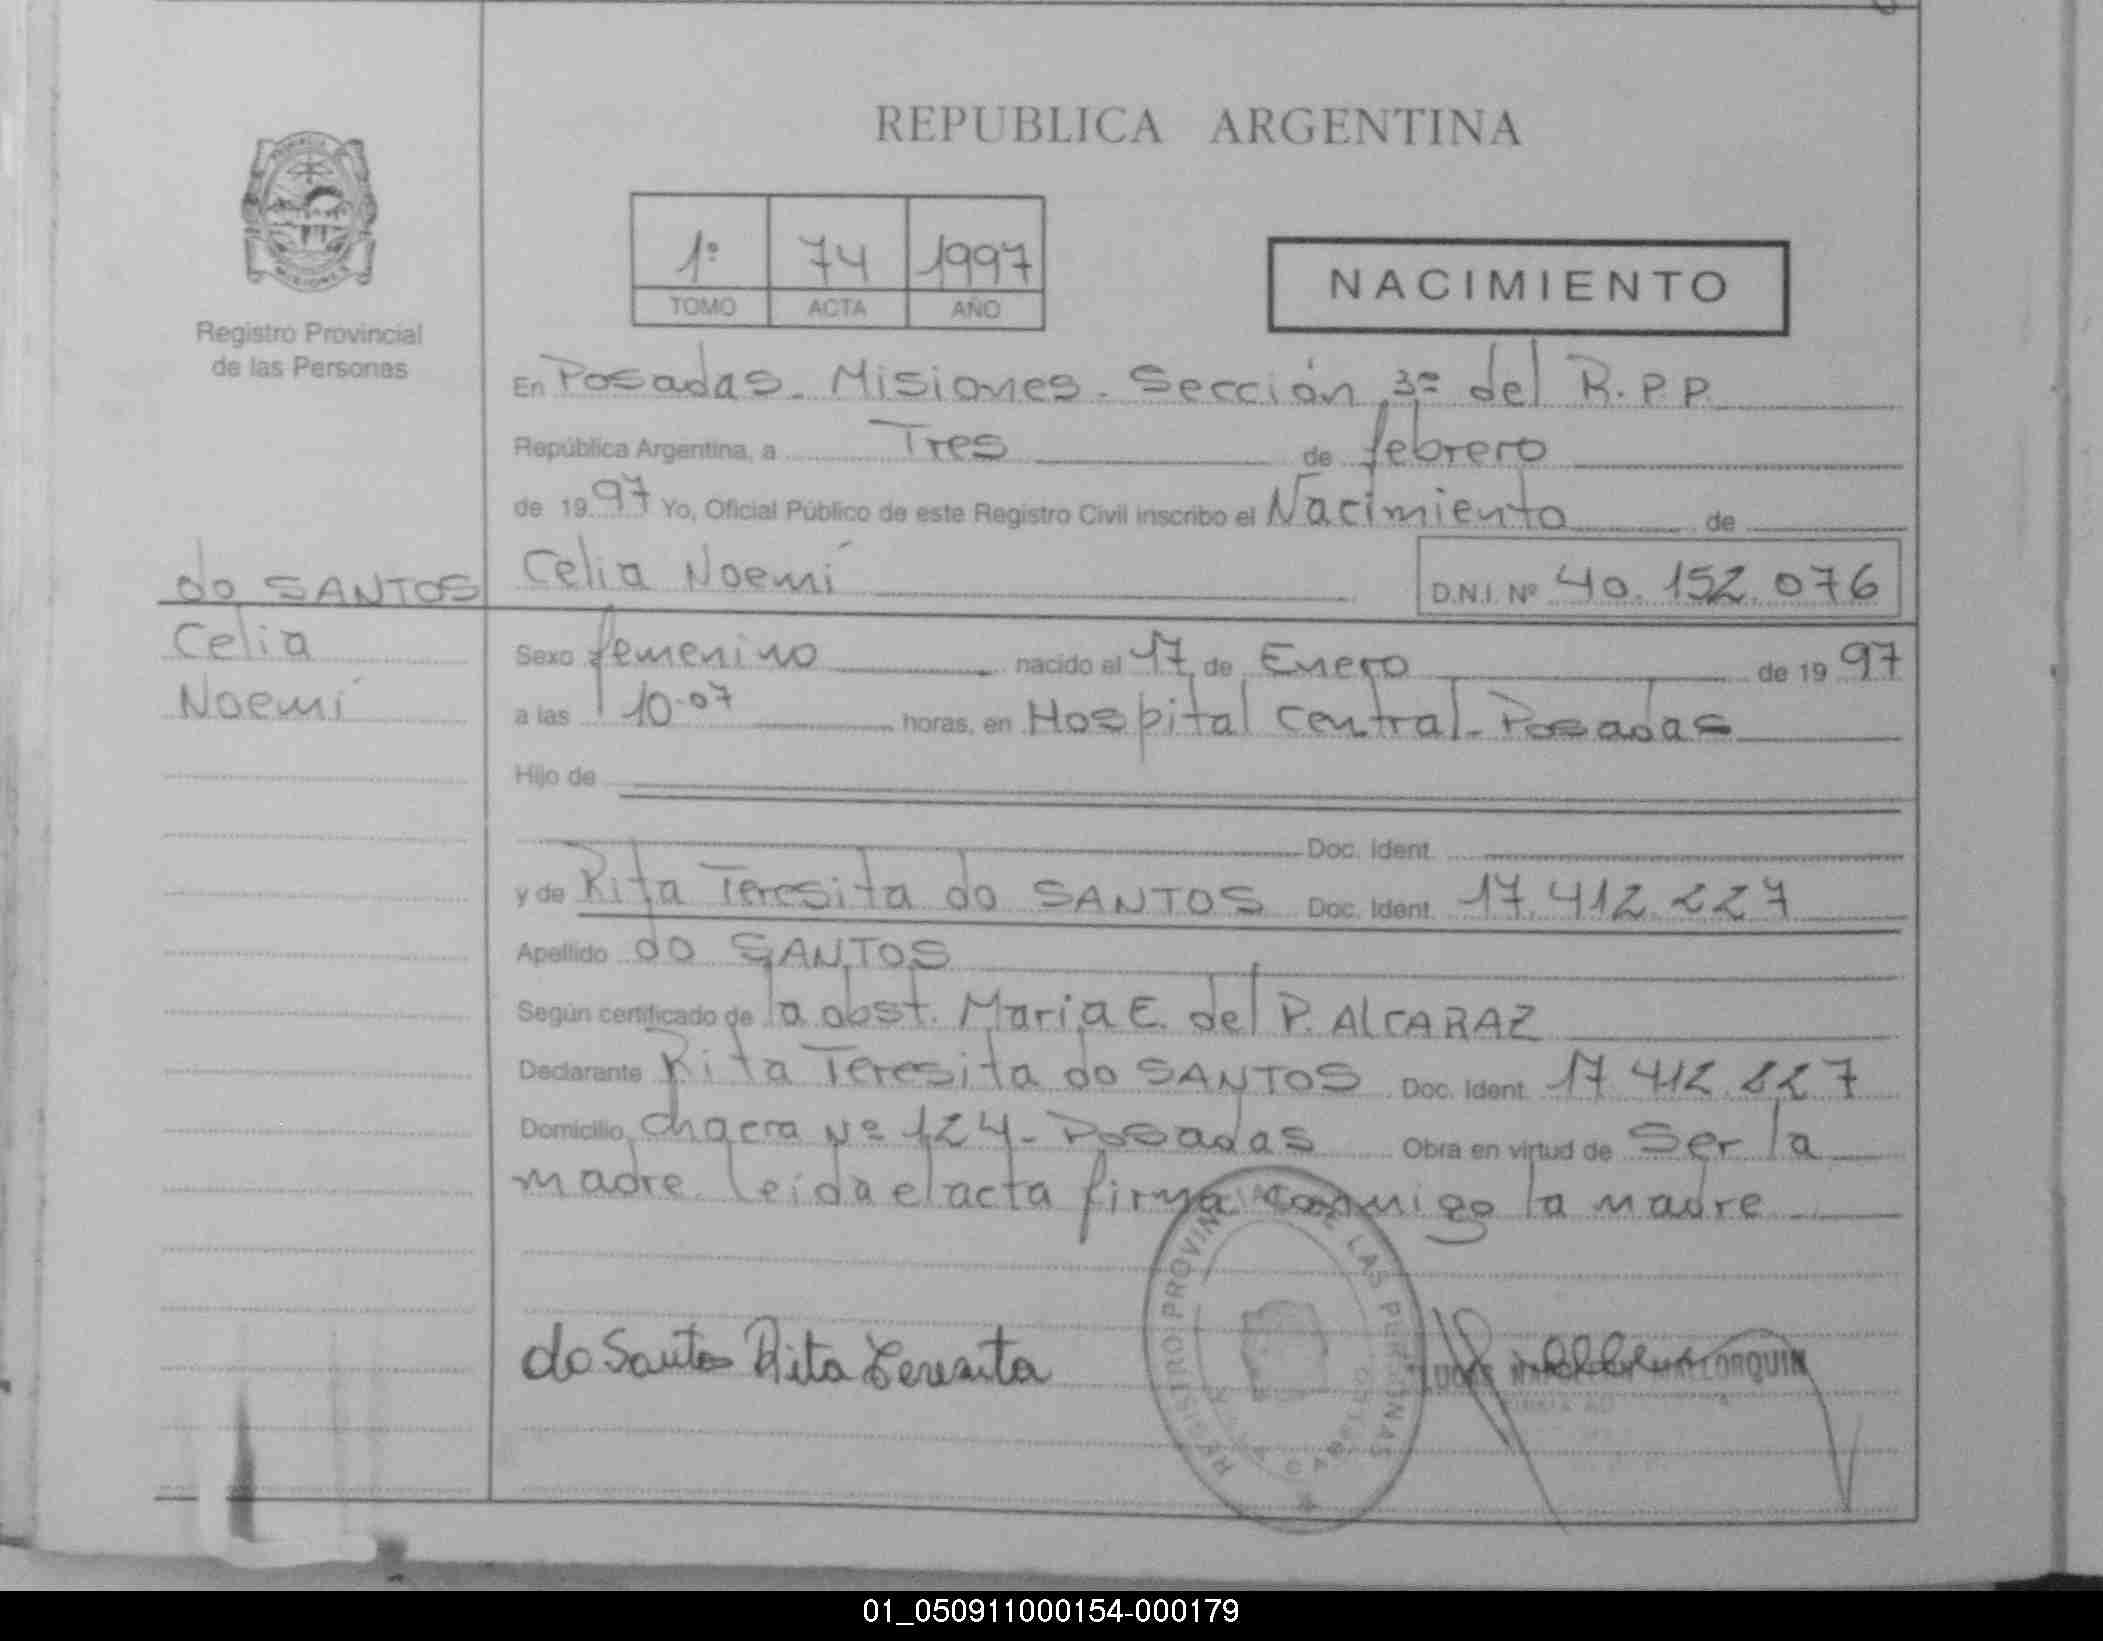 REPUBLICA ARGENTINA
1º 74 1997
TOMO ACTA AÑO
NACIMIENTO
Registro Provincial
de las Personas
En Posadas - Misiones - Sección 3ª del R.P.P.
República Argentina, a Tres de febrero
de 1997 Yo, Oficial Público de este Registro Civil inscribo el Nacimiento de
Celia Noemí D.N.I. Nº 40.152.076
do SANTOS
Celia
Noemí
Sexo femenino nacido el 17 de Enero de 1997
a las 10.07 horas, en Hospital Central - Posadas
Hijo de
Doc. Ident.
y de Rita Teresita do SANTOS Doc. Ident. 17.412.227
Apellido do SANTOS
Según certificado de la obst. Maria E. del P. ALCARAZ
Declarante Rita Teresita do SANTOS Doc. Ident. 17.412.227
Domicilio Chacra Nº 124 - Posadas Obra en virtud de Ser la
madre. Leida el acta firma conmigo la madre
REGISTRO PROVINCIAL DE LAS PERSONAS
do Santos Rita Teresita
01_050911000154-000179